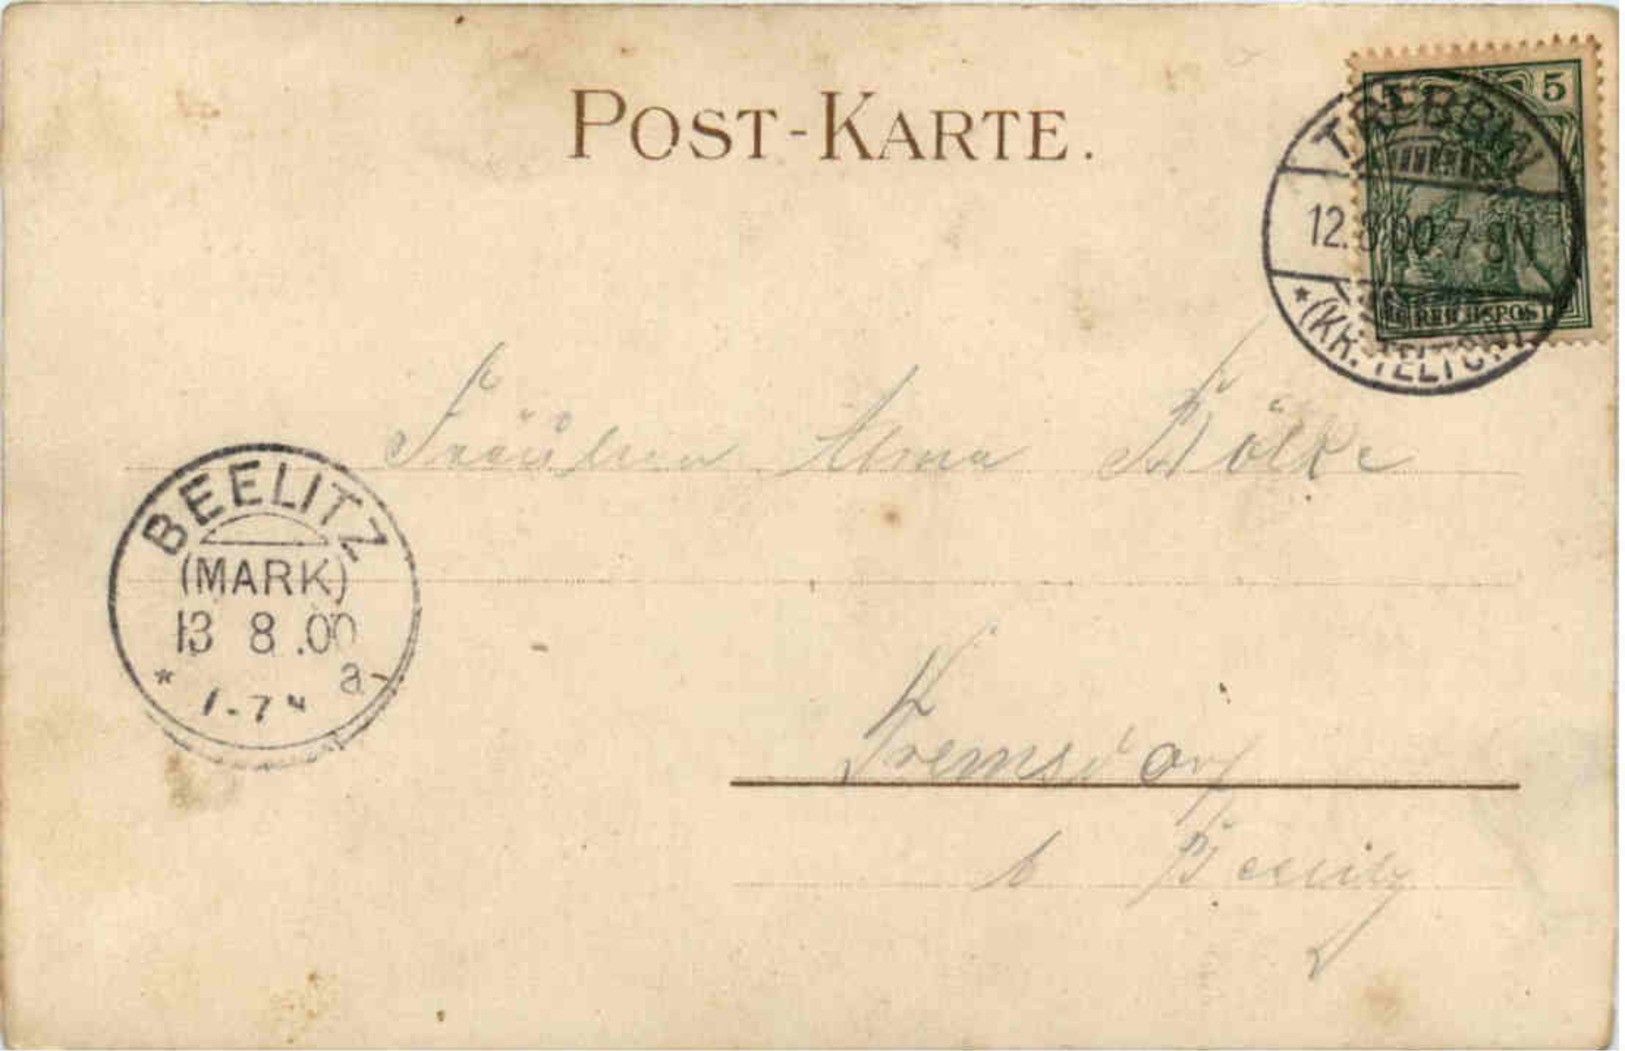 POST-KARTE.
5
REICHSPOST
TREBBIN
12.8.00.7-8N
* (KR. TELTOW)
Fräulein Alma Bölke
BEELITZ
(MARK)
13 8.00
* a
-7
Fremsdorf
b Beelitz